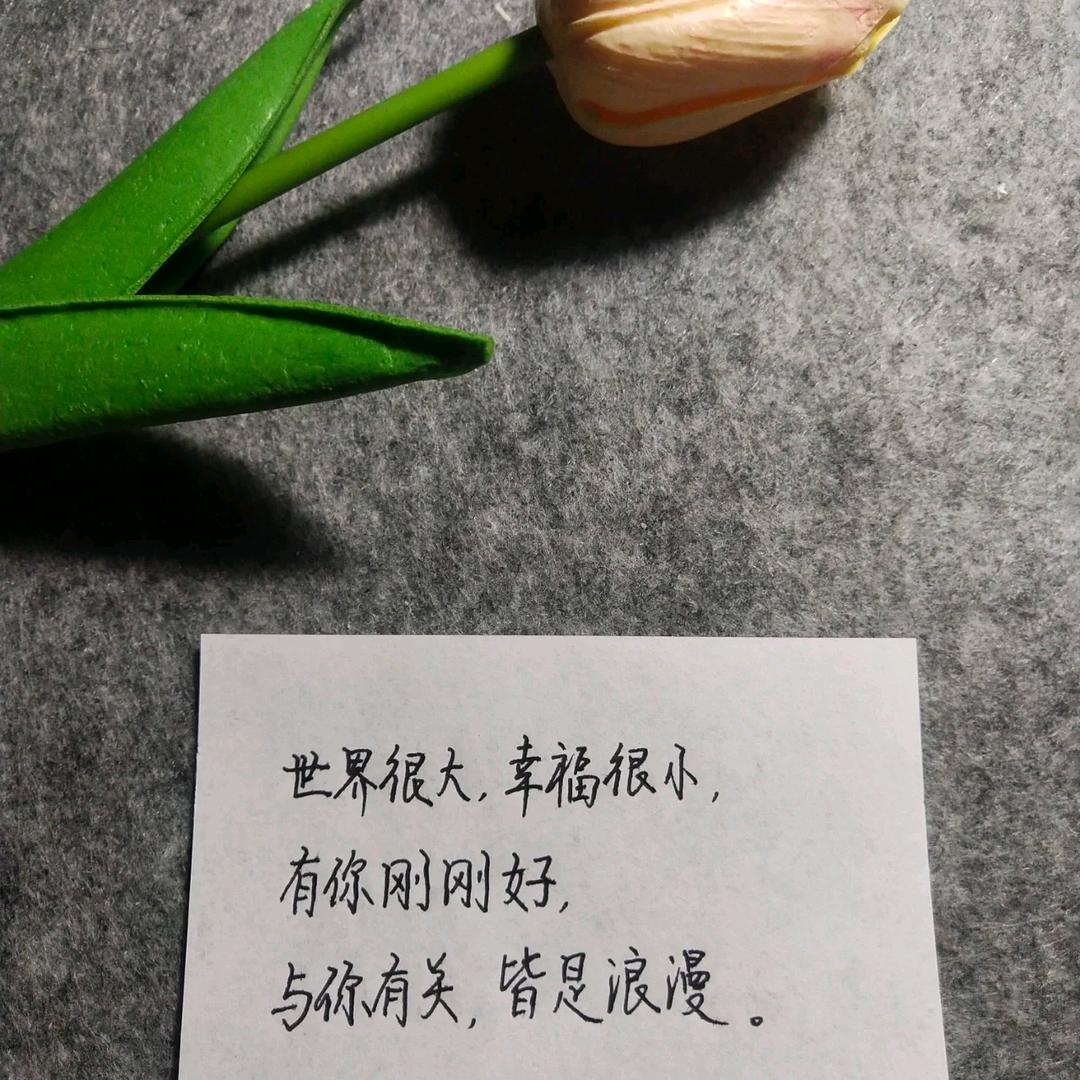 世界很大,幸福很小,
有你刚刚好,
与你有关,皆是浪漫。